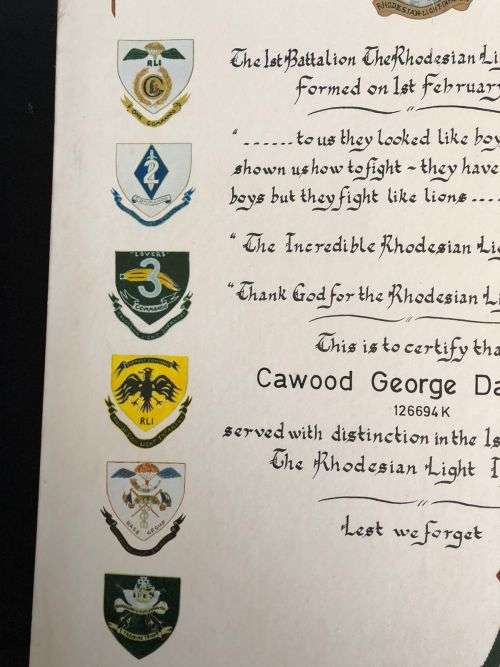 RHODESIAN LIGHT
The 1st Battalion The Rhodesian Li
formed on 1st February
" ...... to us they looked like boy
shown us how to fight ~ they have
boys but they fight like lions ....
" The Incredible Rhodesian Lig
"Thank God for the Rhodesian Li
This is to certify tha
Cawood George Da
126694 K
served with distinction in the 1s
The Rhodesian Light I
Lest we forget
RLI
ONE COMMANDO
2
"LOVERS"
3
COMMANDO
RLI
BASE GROUP